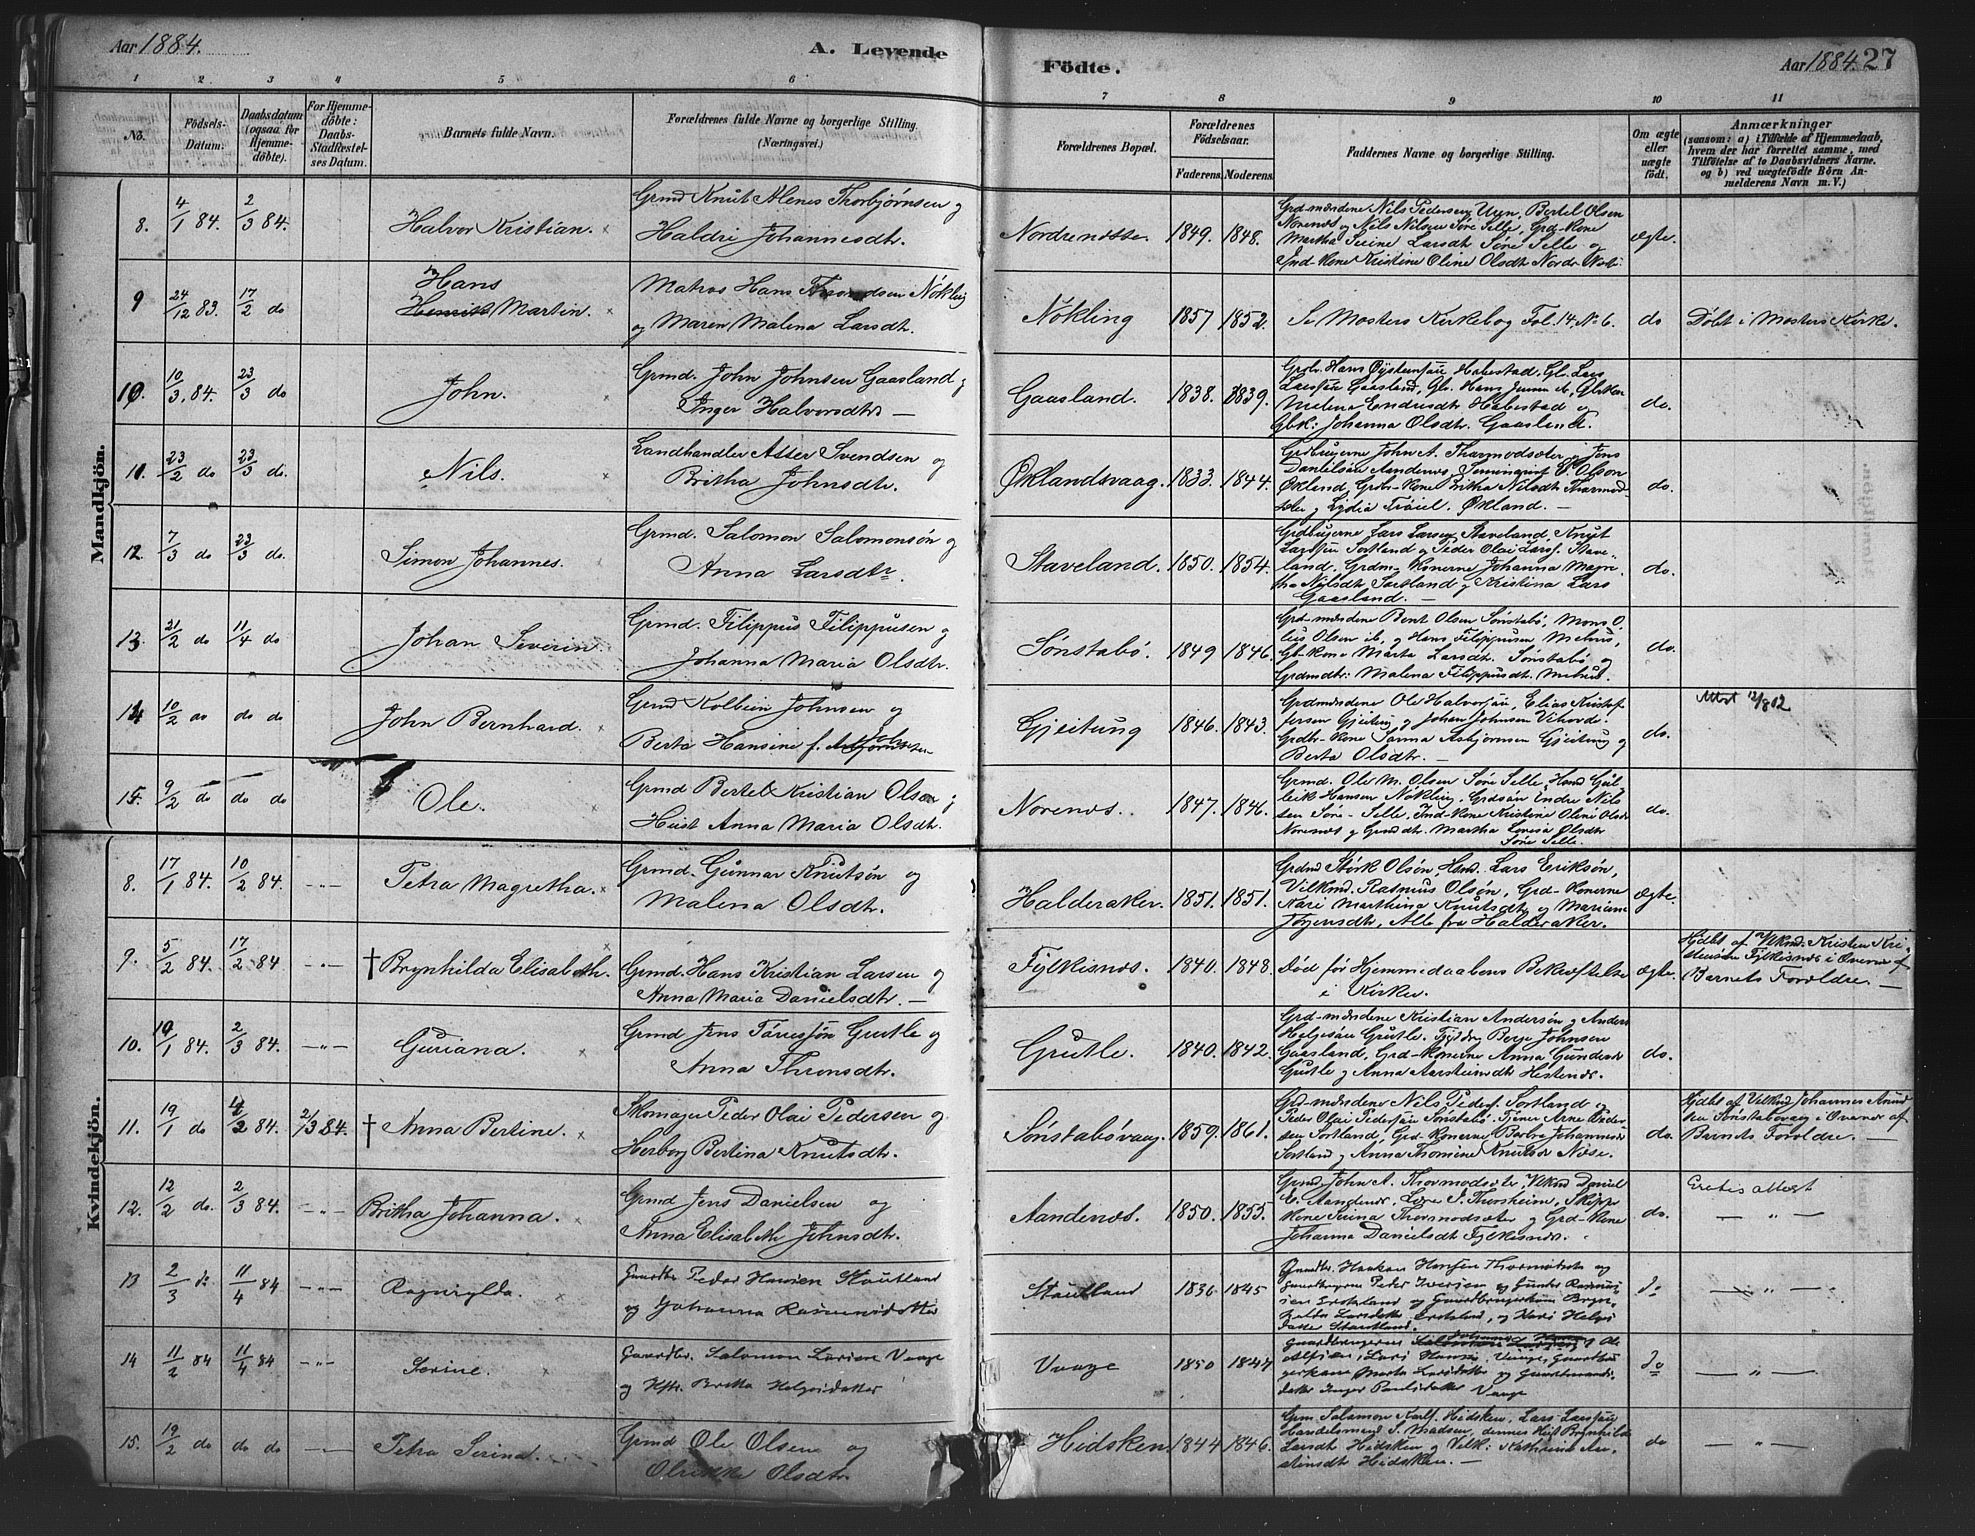 Aar 1884.
A. Levende
Födte.
Aar 1884. 27
1 2 3 4 5 6 7 8 9 10 11
No.
Födsels-Datum.
Daabsdatum (ogsaa for Hjemme-döbte).
For Hjemme-döbte: Daabs-Stadfæstel-ses Datum.
Barnets fulde Navn.
Forældrenes fulde Navne og borgerlige Stilling.
(Næringsvei.)
Forældrenes Bopæl.
Forældrenes Födselsaar.
Faderens. Moderens.
Faddernes Navne og borgerlige Stilling.
Om ægte eller uægte födt.
Anmærkninger
(saasom: a) i Tilfælde af Hjemmedaab,
hvem der har forrettet samme, med
Tilföielse af to Daabsvidners Navne.
og b) ved uægtefödte Börn An-
melderens Navn m. V.)
Mandkjön.
8. 4/1 84. 2/3 84. Halvor Kristian.
Grmd Knut Alenes Thorbjørnsen og
Haldri Johannesdtr.
Nordrenæsse. 1849. 1848.
Grd-mændene Nils Pedersen, Bertel Olsen
Norenæs og Nils Nilsen Søre Selle, Grd-Kone
Martha Serine Larsdt. Søre Selle og
Ind-Kone Kristine Oline Olsdt
ægte.
9 24/12 83. 17/2 do Hans
Martin.
Matros Hans Nökling
og Maren Malena Larsdt.
Nökling 1857 1852. Se Mosters Kirkebog Fol. 14. No 6. do Döbt i Mosters Kirke.
10. 10/3. 84. 23/3 do John.
Grmd. John Johnsen Gaasland og
Inger Halvorsdtr —
Gaasland. 1838. 1839.
Malena Endresdt Habestad og
Gbk: Johanna Olsdt. Gaasland.
do.
11. 23/2 do 23/3 do. Nils.
Landhandler Asser Svendsen og
Britha Johnsdtr.
Øklandsvaag. 1833. 1844.
Grdbrugerne John A. Thormodsæter og Jens
Danielsen Aandenæs, Olson
Økland, Grbr-Kone Britha Nilsdt Thormod-
sæter og Lydia Økland. —
do.
12. 7/3 do 23/3 do. Simon Johannes.
Grmd. Salomon Salomonsön og
Anna Larsdtr.
Staveland. 1850. 1854.
Grdbrugerne Lars Larsen Staveland, Knut
Larssen Sortland og Peder Olai Larss. Stave-
land, Grdm-Konerne Johanna Magre-
tha Nilsdt Sortland og Kristina Lars
Gaasland. —
do.
13. 21/2 do 11/4 do Johan Severin
Grmd. Filippus Filippusen og
Johanna Maria Olsdtr.
Sönstabö. 1849 1846.
Grd-mændene Bent Olsen Sönstabö, Mons O-
lius Olsen ib, og Hans Filippusen Mehus,
Gb-Kone Marta Larsdt. Sönstabö og
Grdmdtr: Malena Filippusdt. Mehus.
do.
14 10/2 do do do John Bernhard.
Grmd Kolbein Johnsen og
Berta Hansine f.
Gjeitung 1846. 1843.
Grdmændene Ole Halvorsen, Elias Kristof-
fersen Gjeitung og Johan Johnsen
Grdbr-Kone Sanna Asbjørnsen Gjeitung og
Berta Olsdt. —
do. Attest 12/8 12
15. 9/2 do do do Ole.
Grmd Bertel Kristian Olsen og
Hust Anna Maria Olsdt.
Norenæs. 1847. 1846.
Grmd. Ole M. Olsen Søre Selle,
Hansen Nökling, Grdsön Endre Nils
sen Søre-Selle, Ind-Kone Kristine Oline Olsdt
Norenæs og Grmdt. Martha Lovisa Olsdt
Søre Selle.
do.
Kvindekjön.
8. 17/1 84. 10/2 84. -"- Petra Magretha.
Grmd. Gunnar Knutsön og
Malena Olsdtr.
Halderaker. 1851. 1851.
Grdmd Störk Olsön, Lars Eriksön,
Vilkmd. Rasmus Olsön, Grd-Konerne
Kari Marthina Knutsdt og Mariane
Jörgensdt, Alle fra Halderaker.
ægte.
9. 5/2 84. 17/2 84 -"- † Brynhilda Elisabeth.
Grmd. Hans Kristian Larsen og
Anna Maria Danielsdtr. —
Fylkisnæs. 1840. 1848.
Död för Hjemmedaabens Bekræftelse
i Kirken.
ægte.
Hjdbt af Vilkmd. Kristen Kri-
stensen Fylkisnæs i Overvær af
Barnets Forældre. —
10. 19/1 84. 2/3 84. -"- Guriana.
Grmd Jens Tørresøn Grutle og
Anna Thronsdtr.
Grutle. 1840. 1842.
Grd-mændene Kristian Andersön og Anders
Helgesön Grutle, Johnsen
Gaasland, Grd-Konerne Anna Gunders
Grutle og Anna Aarsteinsdt Hestenæs.
do.
11. 19/1 do 84. 2/3 84. † Anna Bertine.
Skomager Peder Olai Pedersen og
Herborg Bertina Knutsdtr.
Sönstabövaag. 1859. 1861.
Grd-mændene Nils Peders. Sortland og
Peder Olai Pedersen Sönstabö, Tjener Arne Peder-
sen Sortland, Grd-Konerne Barbro Johannesd
Sortland og Anna Thomine Knutsdt Nese.
do.
Hjdbt af Vilkmd Johannes Amund
fra Sönstabövaag i Overvær af
Barnets Forældre. —
12. 12/2 do. 2/3 84. -"- Britha Johanna.
Grmd Jens Danielsen og
Anna Elisabeth Johnsdtr.
Aandenæs. 1850. 1855.
Grmd John A. Thormodsæter, Vlkmd Daniel
E. Aandenæs, Lars J. Thorsheim,
Kone Serina Thormodsæter og Grd-Kone
Johanna Danielsdt Fylkesnæs.
do. Gratis attest
— " —
13 2/3 do 11/4 84 -"- Ragnvylda.
Gaardbr Peder Hansen Stautland
og Johanna Rasmusdotter
Stautland 1836 1845
Gaardbr. Haakon Hansen Thormodsæter og
Gaardbrugerne Peder Iversen og Gunder Rasmus-
sen og Gaardbrugerkone Bryn-
hilda Larsdatter og Kari Helge
datter Stautland.
do — " —
14 11/2 84 11/4 84 -"- Serine.
Gaardbr. Salomon Larsen Vaage
og Hstr. Britta Helgesdatter
Vaage 1850 1847
Gaardbrugerne
Lars Hansen, Vaage, Gaardbru-
gerkone Marta Larsdatter og Gaardmands-
datter Inger Paulsdatter Vaage
do — " —
15. 19/2 do do do -"- Petra Serina.
Grmd Ole Olsen og
Olrikke Olsdtr.
Hidsken 1844 1846.
Grm. Salamon Karls. Hidsken, Lars Larssen
Handelsmand S. Madsen, dennes Hust Brynhilda
Larsdt Hidsken og Vilk: Kathrina
Hidsken. —
do — " —